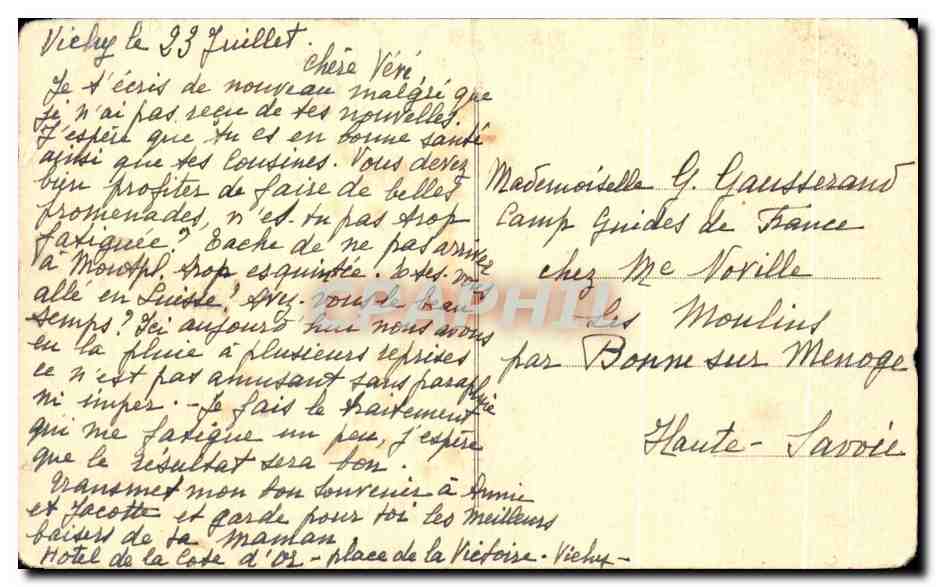 Vichy le 23 Juillet.
Chère Véré
Je t'écris de nouveau malgré que
je n'ai pas reçu de tes nouvelles.
J'espère que tu es en bonne santé
ainsi que tes Cousines. Vous devez
bien profiter de faire de belles
promenades, n'es tu pas trop
fatiguée? Tache de ne pas arriver
à Montpl. trop esquintée. Etes-vous
allé en Suisse? Avez-vous le beau
temps? Ici aujourd'hui nous avons
eu la pluie à plusieurs reprises
ce n'est pas amusant sans parapluie
ni imper. - Je fais le traitement
qui me fatigue un peu, j'espère
que le résultat sera bon.
Transmet mon bon souvenir à Annie
et Jacotte et garde pour toi les meilleurs
baisers de ta Maman
Hôtel de la Cote d'Or - place de la Victoire - Vichy -
Mademoiselle G. Gausserand
Camp Guides de France
chez Me Noville
Les Moulins
par Bonne sur Menoge
Haute-Savoie
CPAPHIL